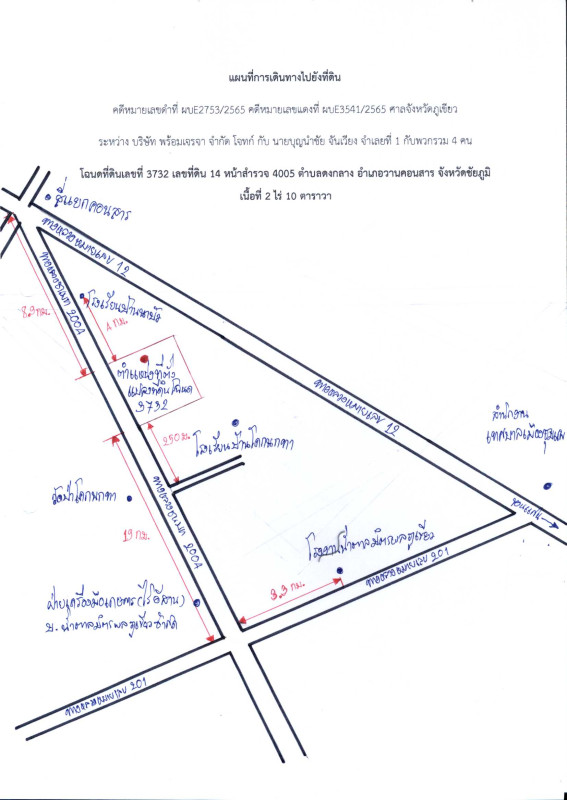 แผนที่การเดินทางไปยังที่ดิน
คดีหมายเลขดำที่ ผบE2753/2565 คดีหมายเลขแดงที่ ผบE3541/2565 ศาลจังหวัดภูเขียว
ระหว่าง บริษัท พร้อมเจรจา จำกัด โจทก์ กับ นายบุญนำชัย จันเวียง จำเลยที่ 1 กับพวกรวม 4 คน
โฉนดที่ดินเลขที่ 3732 เลขที่ดิน 14 หน้าสำรวจ 4005 ตำบลดงกลาง อำเภอวานคอนสาร จังหวัดชัยภูมิ
เนื้อที่ 2 ไร่ 10 ตาราวา
สี่แยกคอนสาร
ทางหลวงหมายเลข 12
ทางหลวงชนบท 2004
8.9 กม.
โรงเรียนบ้านนาบัว
4 กม.
ตำแหน่งที่ตั้ง
แปลงที่ดินโฉนด
3732
ทางหลวงหมายเลข 12
สำนักงาน
เทศบาลเมืองชุมแพ
250 ม.
โรงเรียนบ้านโคกนกทา
ขอนแก่น
วัดป่าโคกนกทา
19 กม.
ทางหลวงชนบท 2004
โรงงานน้ำตาลมิตรผลภูเขียว
3.3 กม.
ทางหลวงหมายเลข 201
ฝ่ายเครื่องมือเกษตร (ไร่อีสาน)
บ. น้ำตาลมิตรผลภูเขียว จำกัด
ทางหลวงหมายเลข 201